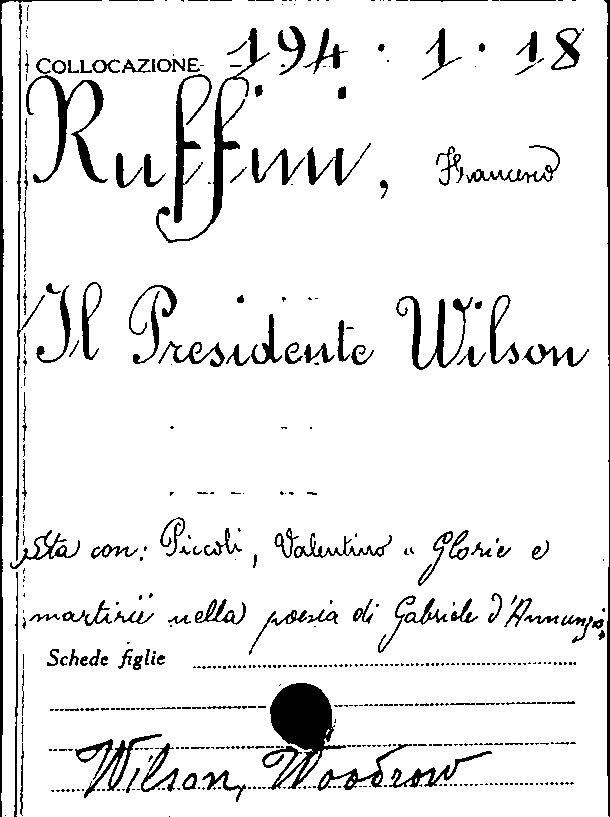 COLLOCAZIONE 194 · 1 · 18
Ruffini, Francesco
Il Presidente Wilson
Sta con: Piccoli, Valentino „ Glorie e
martirii nella poesia di Gabriele d'Annunzio,
Schede figlie
Wilson, Woodrow